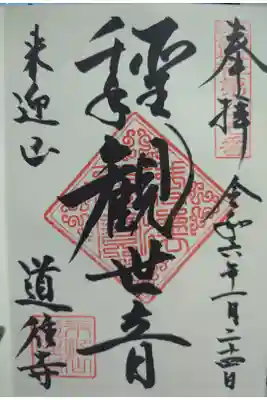 奉拝
令和六年一月二十四日
聖
千手
觀世音
来迎山
道往寺